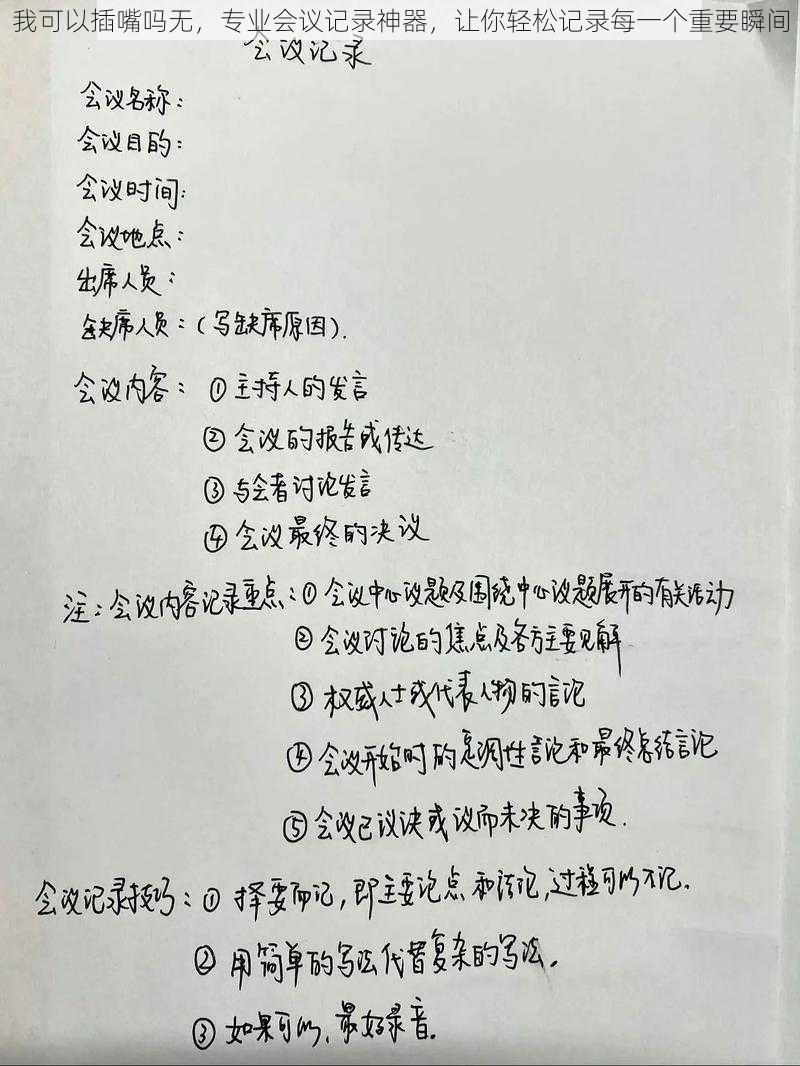 我可以插嘴吗无，专业会议记录神器，让你轻松记录每一个重要瞬间
会议记录
会议名称：
会议目的：
会议时间：
会议地点：
出席人员：
缺席人员：（写缺席原因）.
会议内容：①主持人的发言
②会议的报告或传达
③与会者讨论发言
④会议最终的决议
注：会议内容记录重点：①会议中心议题及围绕中心议题展开的有关活动
②会议讨论的焦点及各方主要见解
③权威人士或代表人物的言论
④会议开始时的定调性言论和最终总结言论
⑤会议已议决或议而未决的事项.
会议记录技巧：①择要而记，即主要论点和结论，过程可以不记.
②用简单的写法代替复杂的写法。
③如果可以，最好录音.